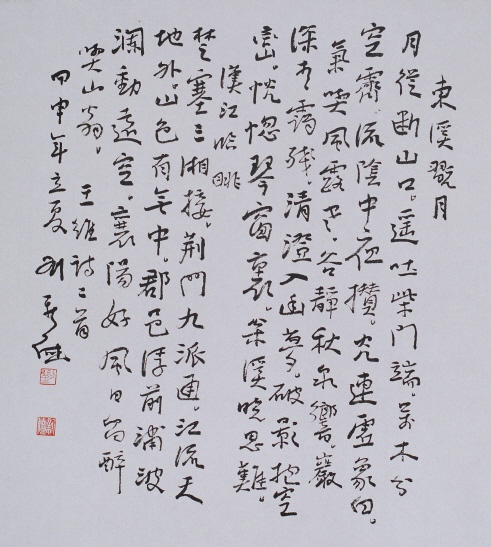 東溪翫月
月從断山口。遥吐柴门端。万木分
空霽。流陰中夜攢。光連虛象白。
氣與風露寒。谷靜秋泉響。巖
深青靄殘。清澄入幽夢。破影抱空
巒。恍惚琴窗裏。松溪曉思難。
漢江臨眺
楚塞三湘接。荆門九派通。江流天
地外。山色有無中。郡邑浮前浦。波
瀾動遠空。襄陽好風日。留醉
與山翁。王維詩二首
甲申年立夏 刘